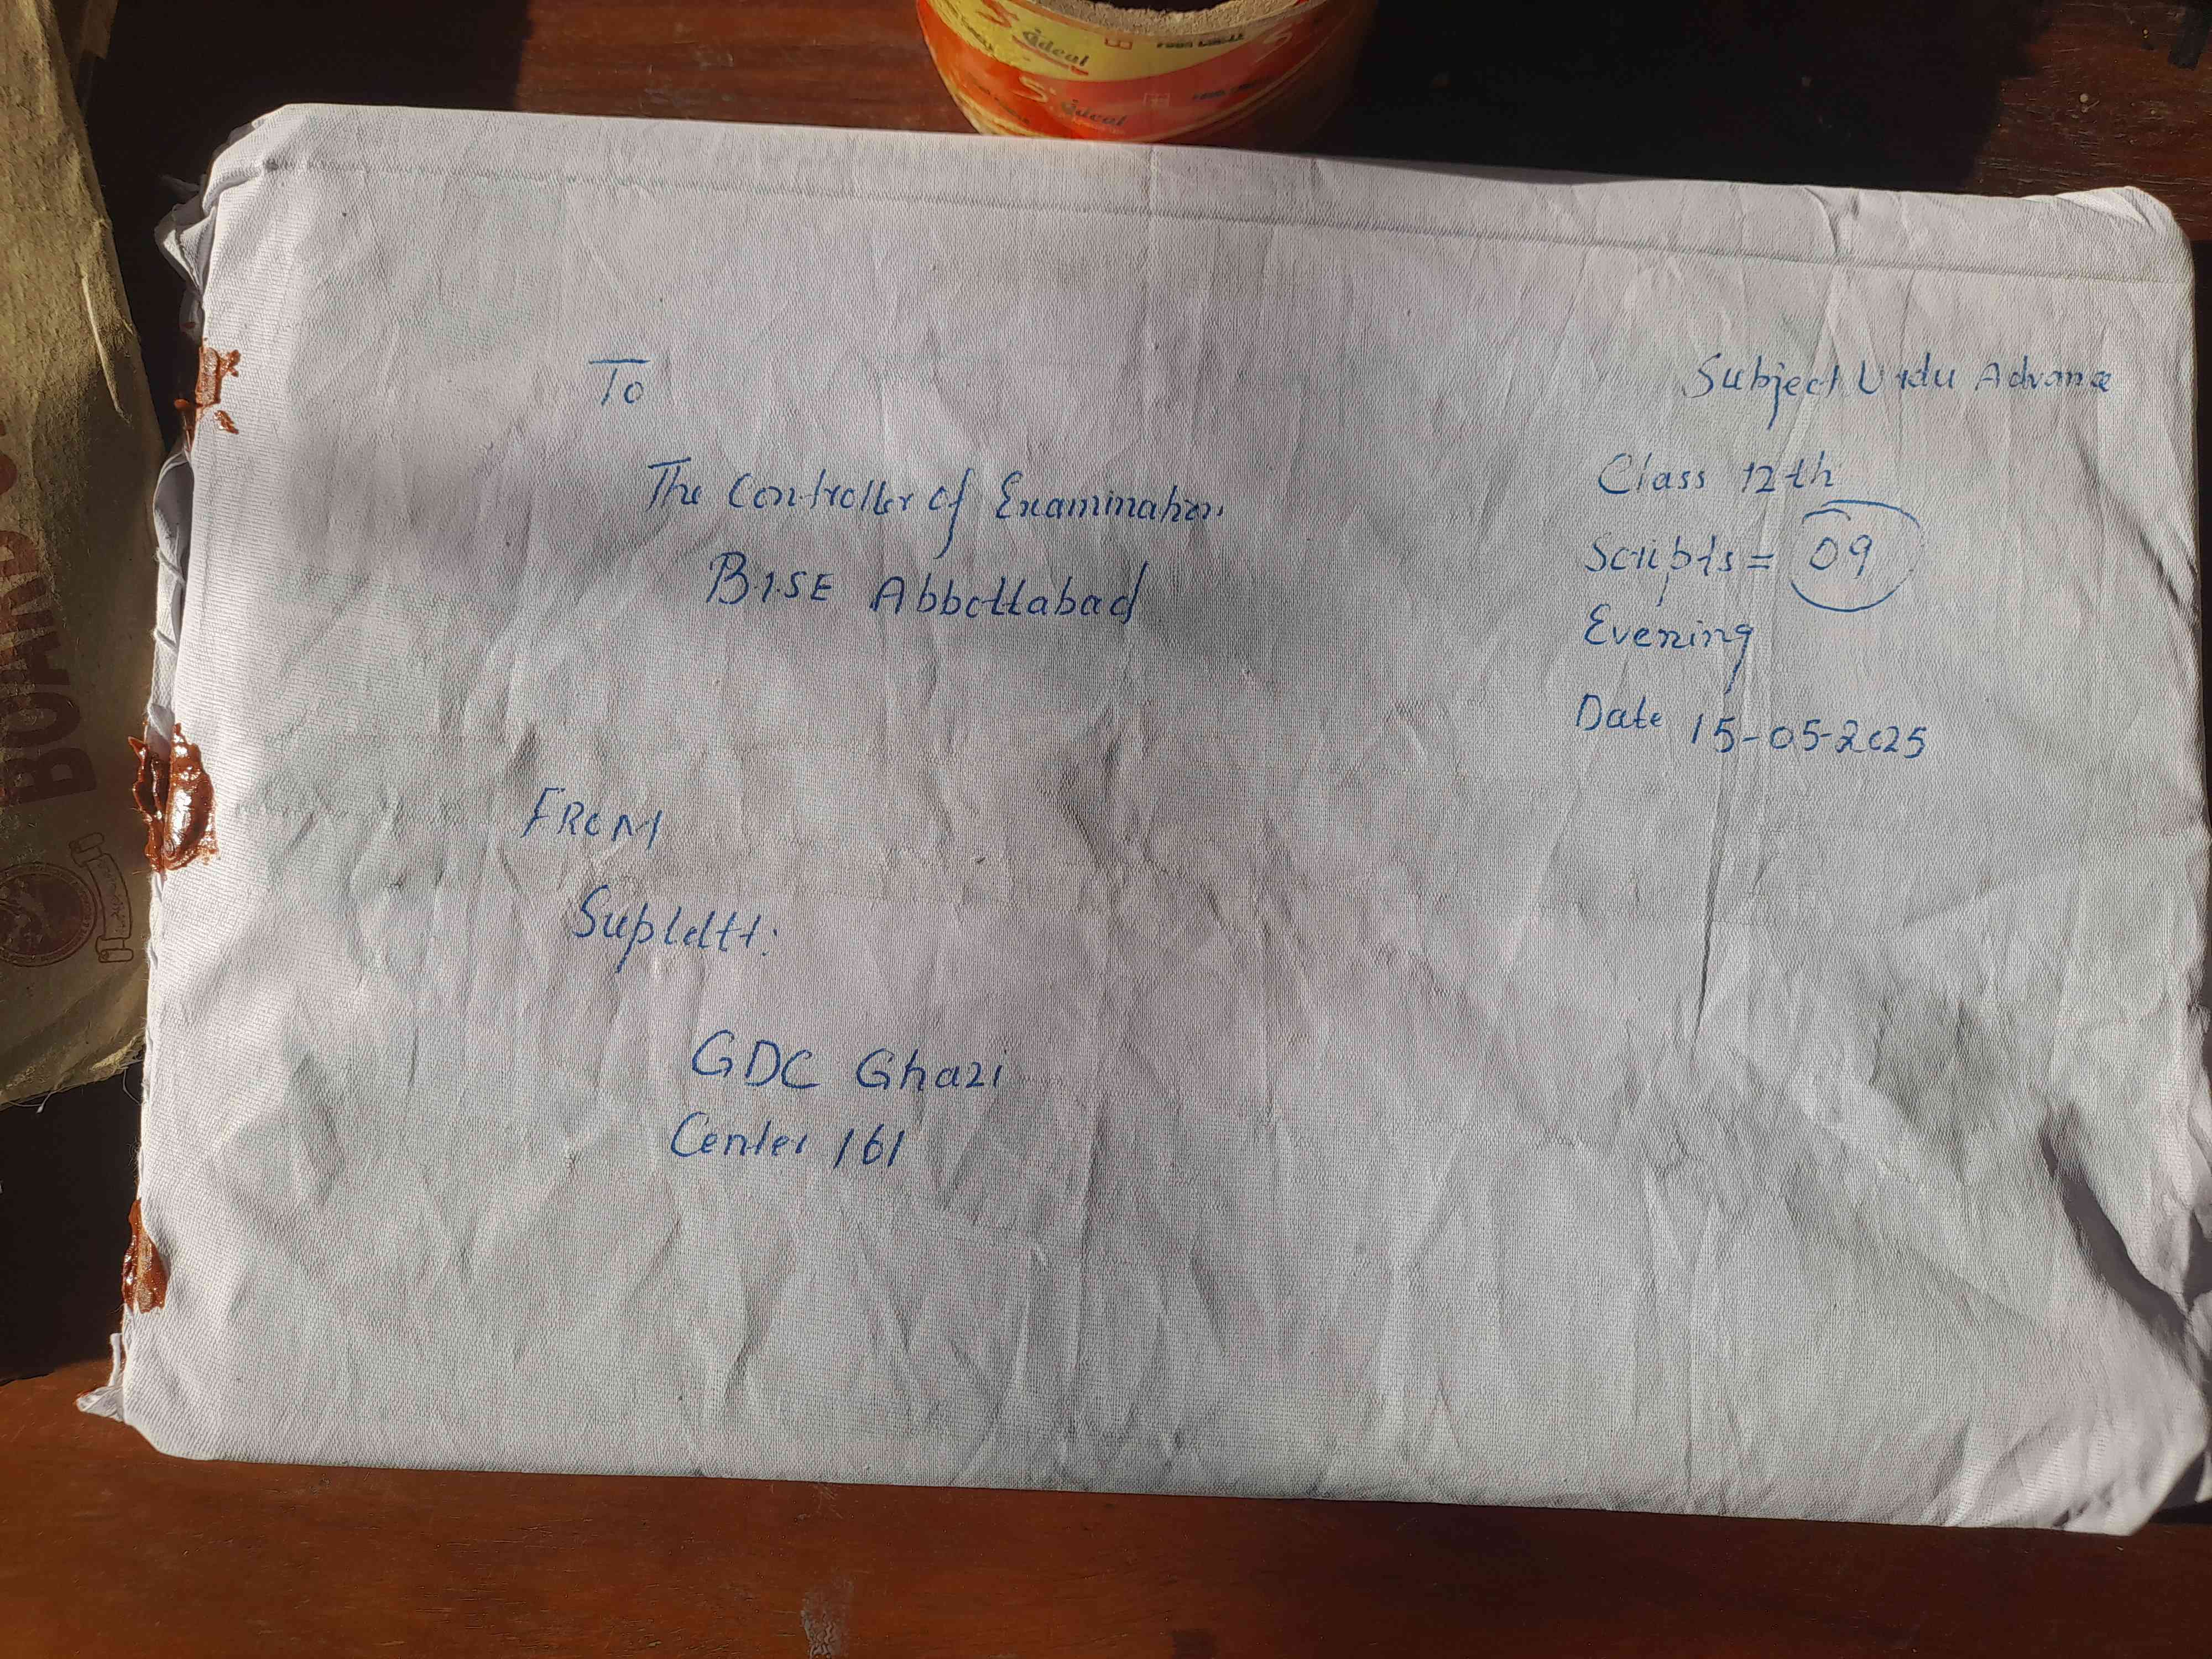 Ideal
Ideal
To
The Controller of Examination
BISE Abbottabad
Subject Urdu Advance
Class 12th
Scripts = 09
Evening
Date 15-05-2025
FROM
Supldtt:
GDC Ghazi
Center 161
BOARD